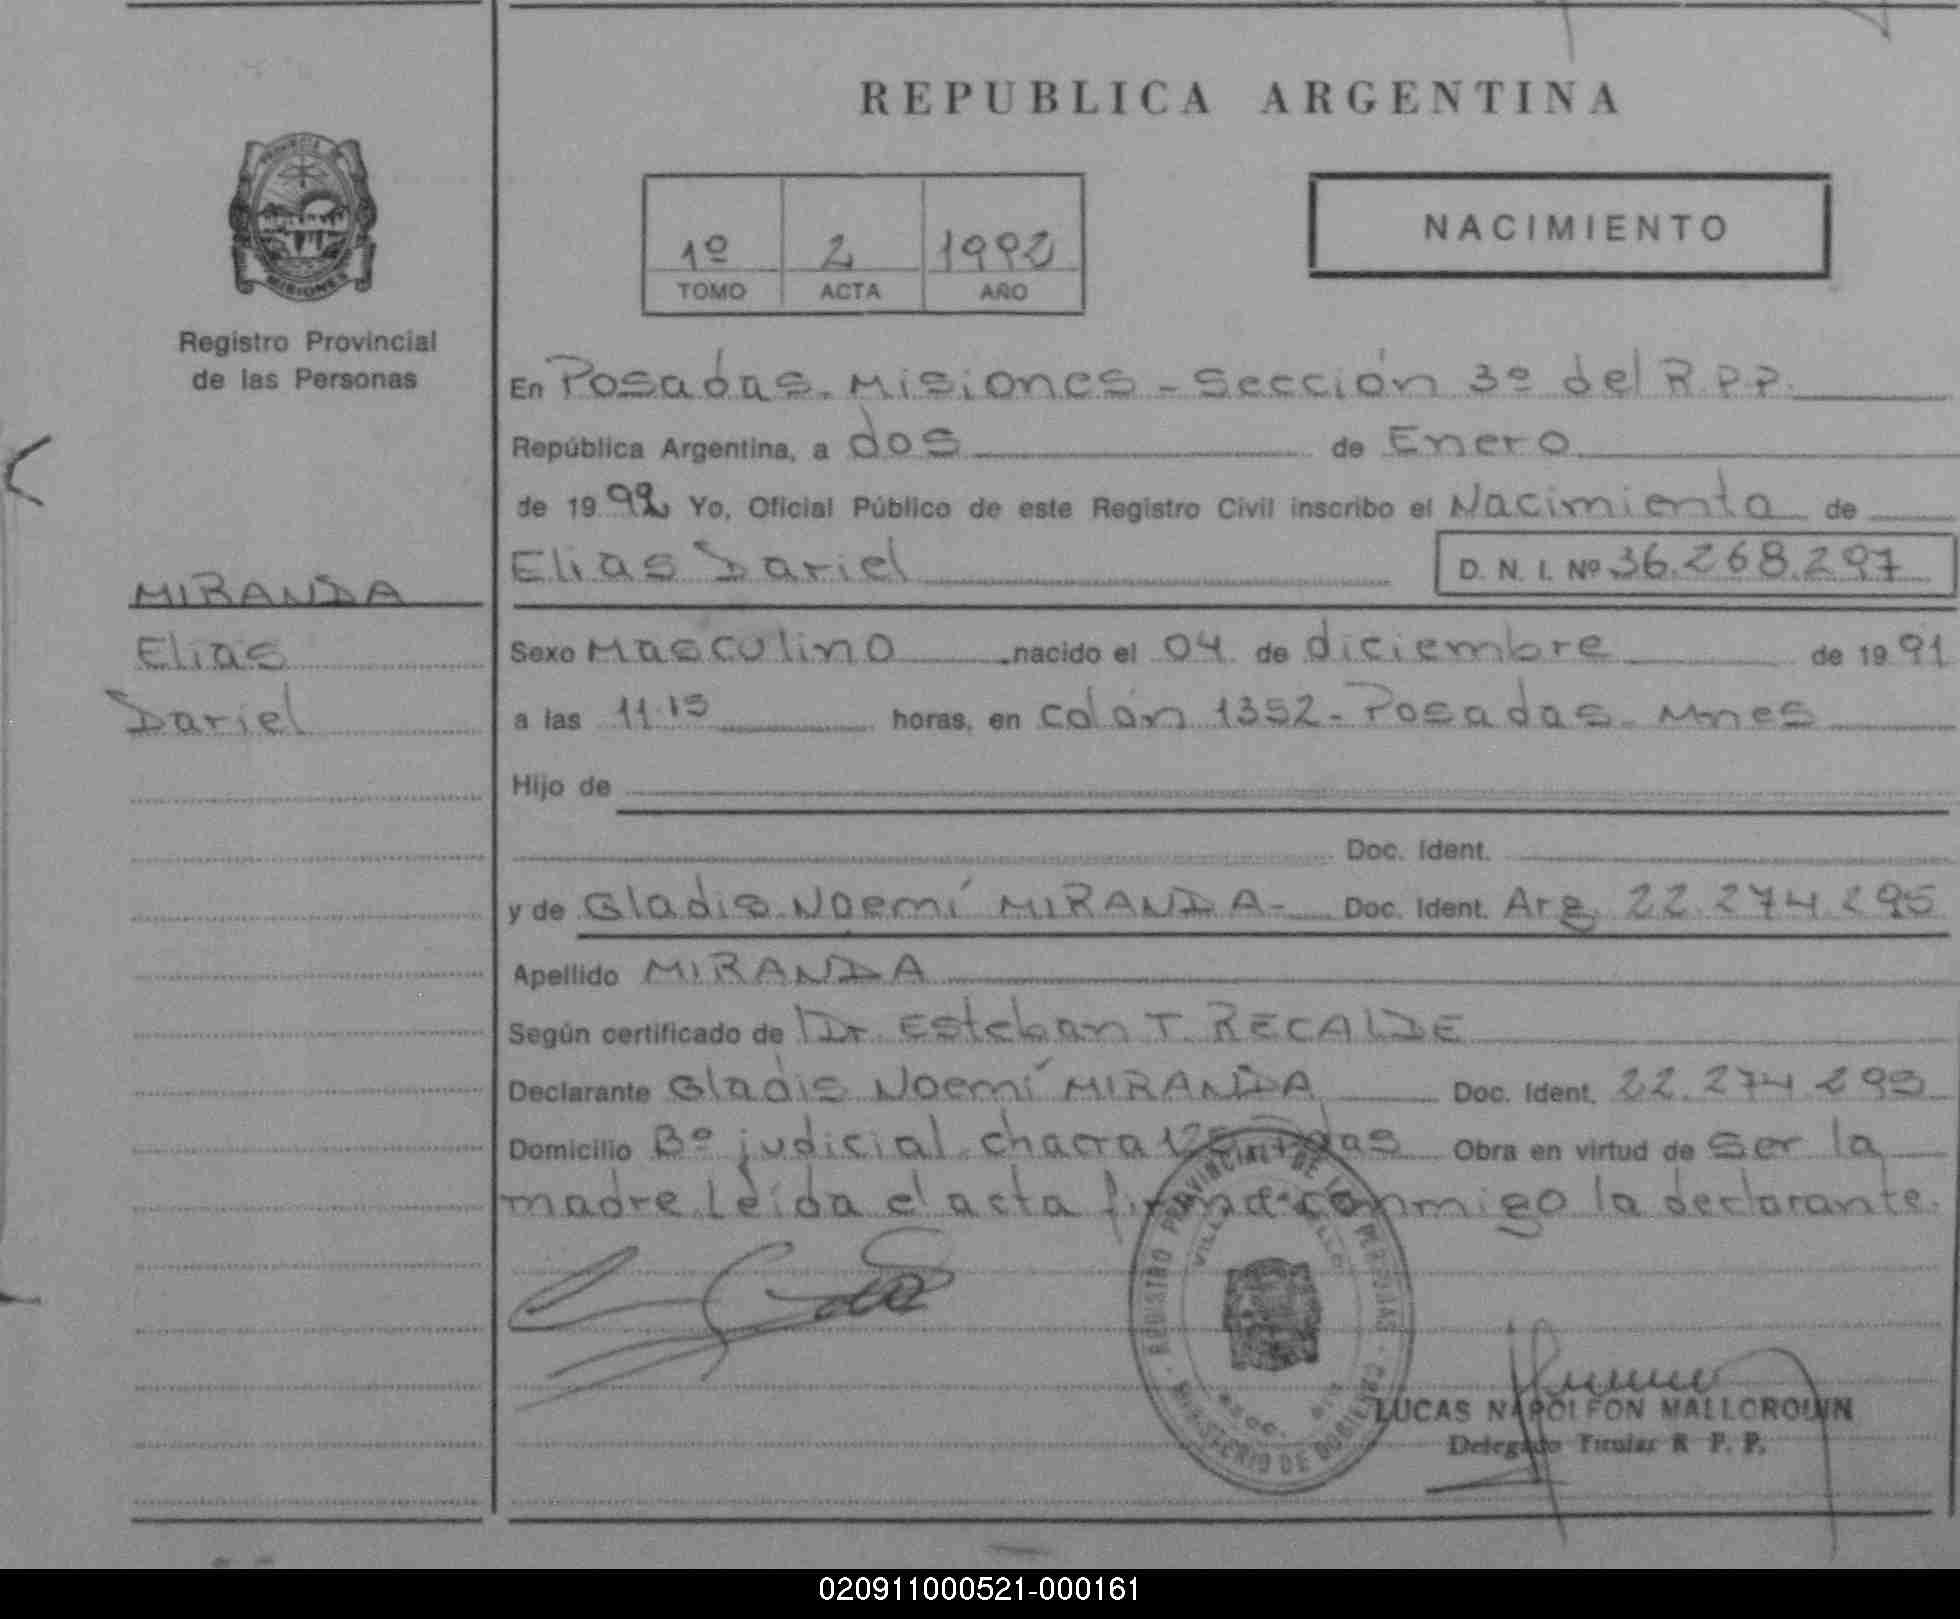 REPUBLICA ARGENTINA
PROVINCIA DE MISIONES
Registro Provincial
de las Personas
1º 2 1992
TOMO ACTA AÑO
NACIMIENTO
En Posadas. Misiones - Sección 3º del R.P.P.
República Argentina, a dos de Enero
de 1992 Yo, Oficial Público de este Registro Civil inscribo el Nacimiento de
Elias Dariel D. N. I. Nº 36.268.297
MIRANDA
Elias
Dariel
Sexo Masculino nacido el 04 de diciembre de 1991
a las 11.15 horas, en Colón 1352 - Posadas - Mnes
Hijo de
Doc. Ident.
y de Gladis Noemí MIRANDA - Doc. Ident. Arg. 22.274.295
Apellido MIRANDA
Según certificado de Dr. Esteban T. RECALDE
Declarante Gladis Noemí MIRANDA Doc. Ident. 22.274.295
Domicilio Bº judicial chacra Obra en virtud de ser la
madre. Leída el acta firma conmigo la declarante.
REGISTRO PROVINCIAL DE LAS PERSONAS
MINISTERIO DE GOBIERNO
LUCAS NAPOLEON MALLORQUIN
Delegado Titular R. P. P.
020911000521-000161